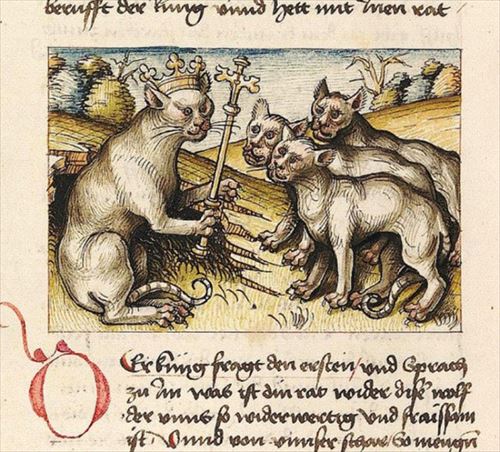 berufft der kunig vnnd hett mit Inen rat
Der kunig fragt den ersten / vnd sprach
zu Im was ist din rat wider dise wolf
der vnns so widerwertig vnd fraissam
ist / Vnnd von vnnser schar / So menigen